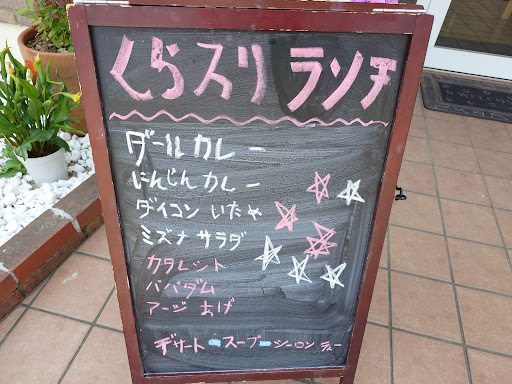 くらスリ ランチ
ダールカレー
にんじんカレー
ダイコン いため
ミズナ サラダ
カタレット
パパダム
アージ あげ
デザート スープ シーロン ティー
WELCOME